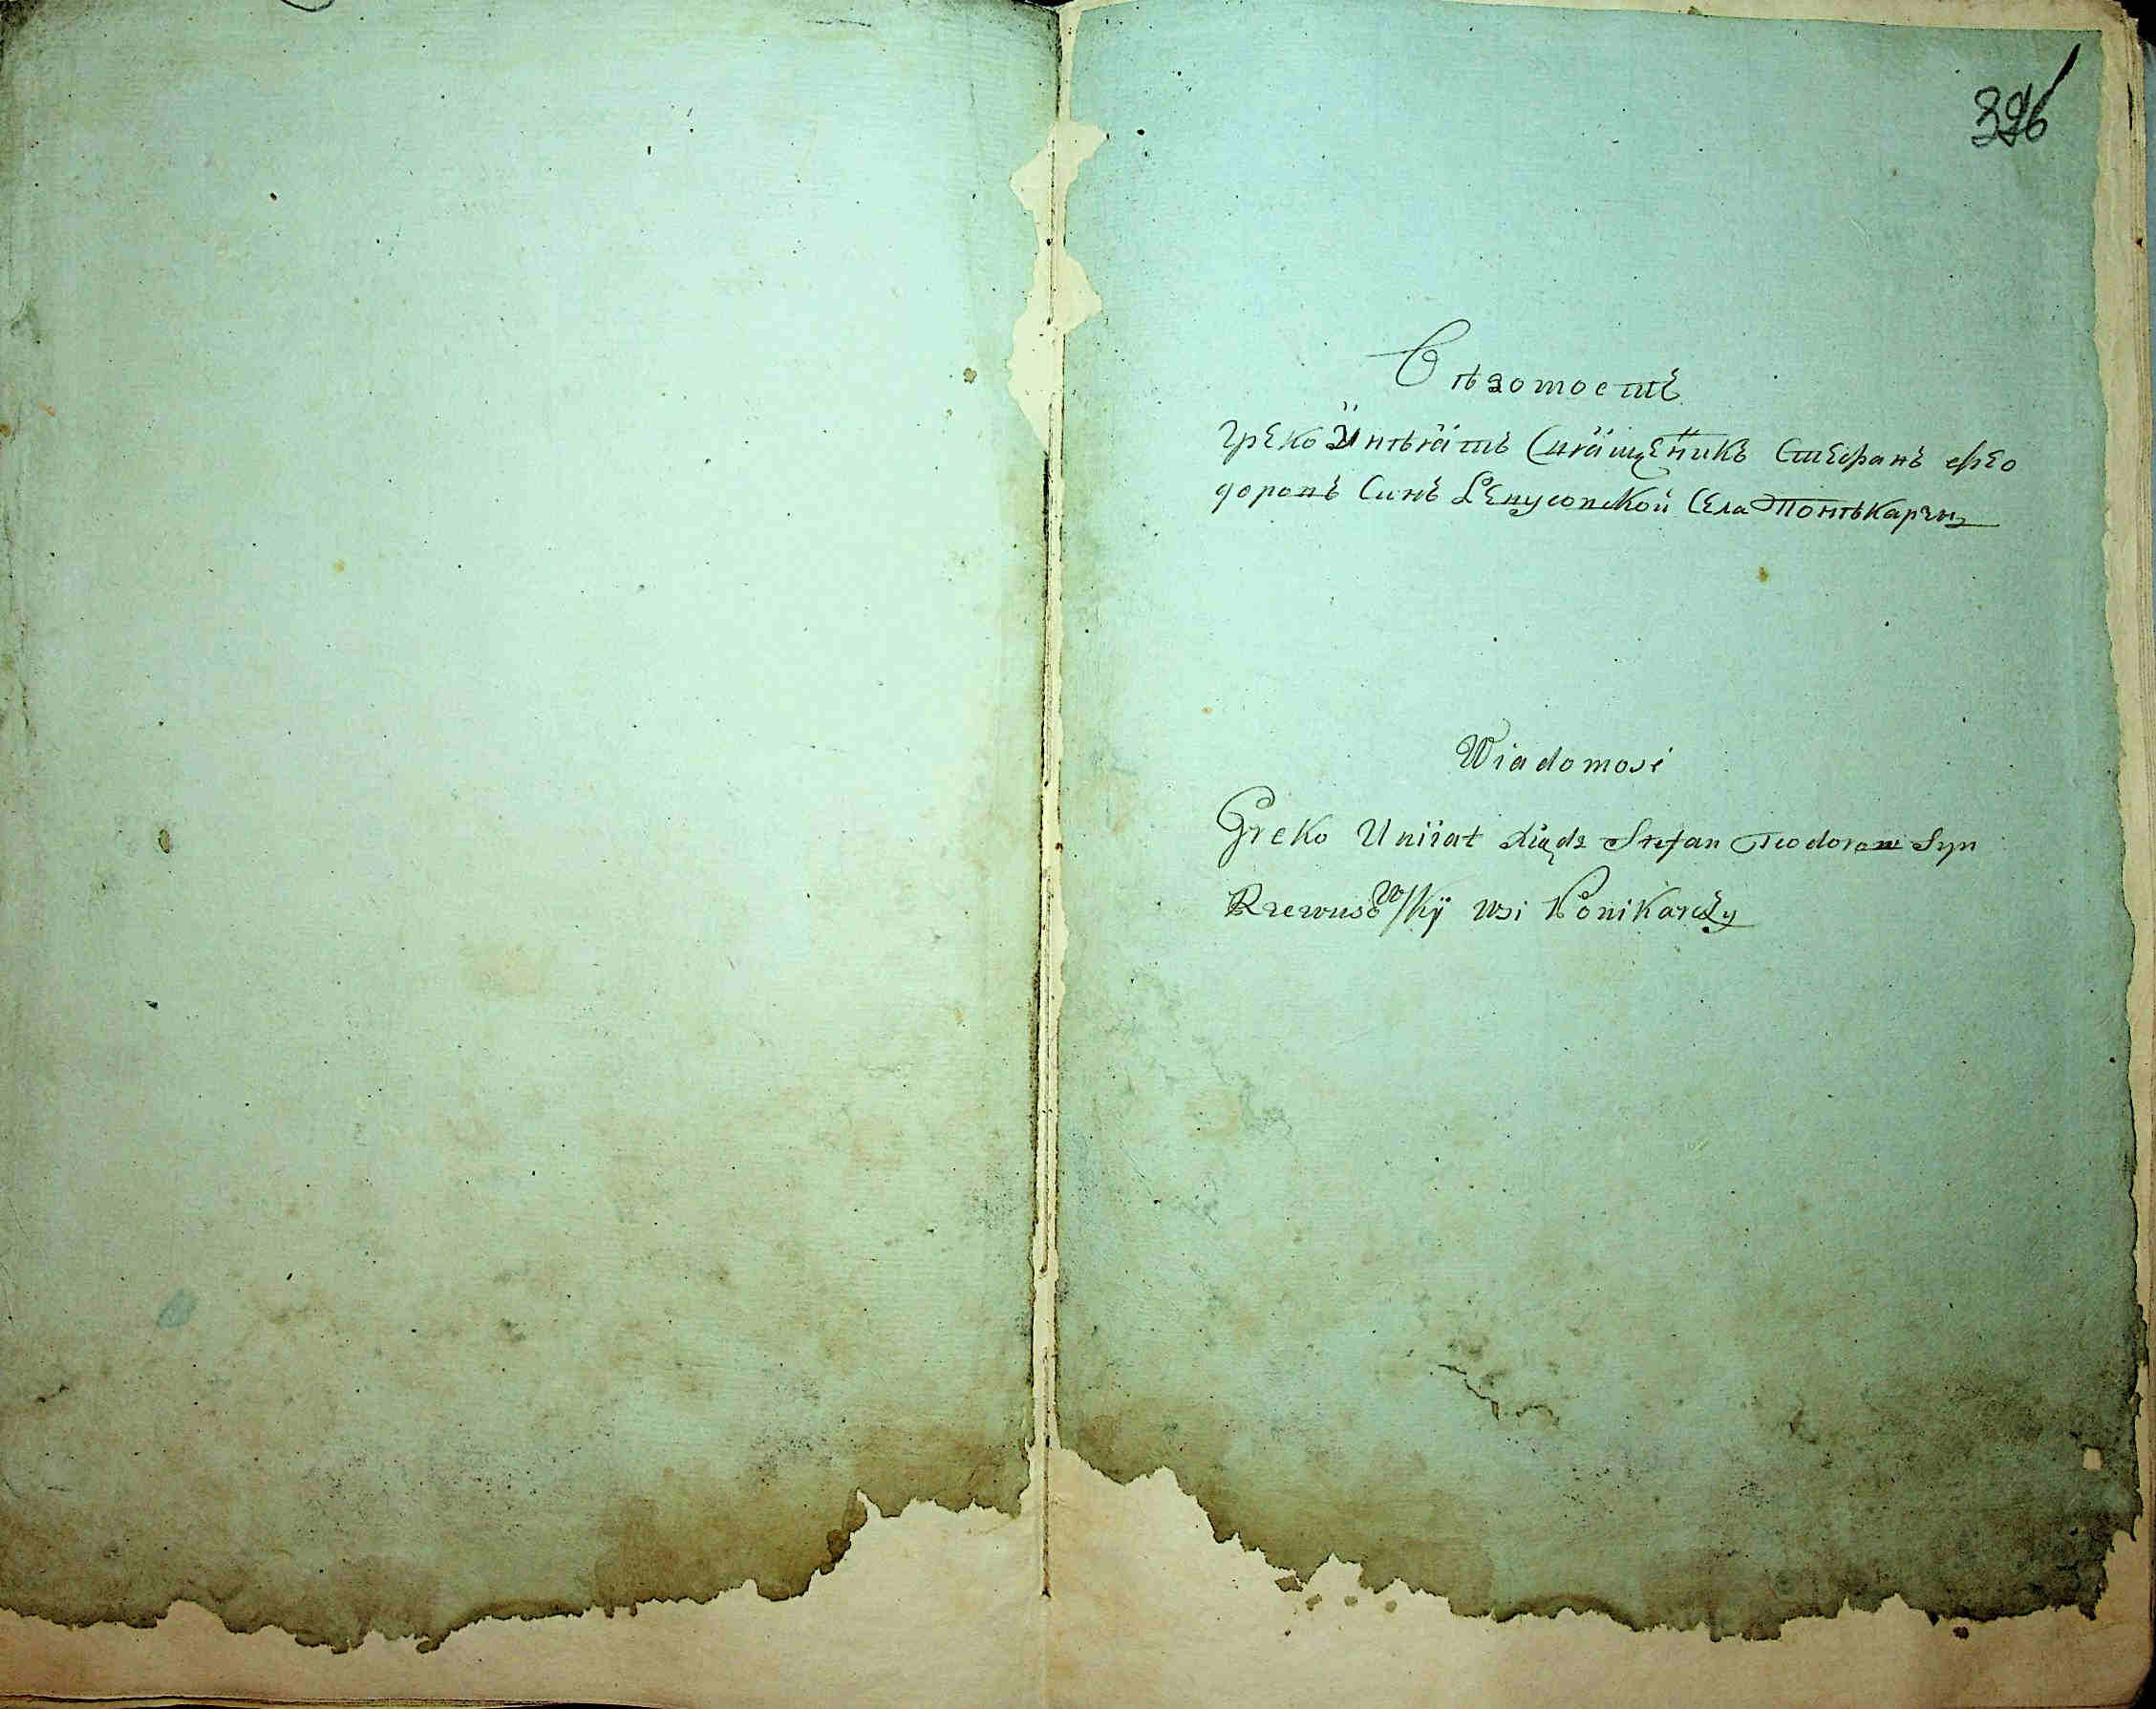 396
Вѣдомость
Греко Унѣятъ Священикъ Стефанъ Фео
доровъ Синъ Ревусовской Села Понѣкарчи
Wiadomosć
Greko Uniiat Xiądz Stefan Teodorow Syn
Rzewusowskÿ wsi Ponikarczy